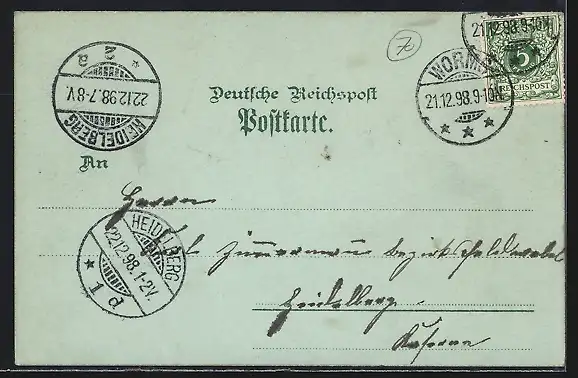 70
21.12.98.9-10N.
5
REICHSPOST
WORMS
21.12.98.9-10N.
* * *
HEIDELBERG
22.12.98.7-8V.
* 2 a
Deutsche Reichspost
Postkarte.
An
Herrn
HEIDELBERG
22.12.98.1-2V.
* 1 d
Zimmermann Bezirksfeldwebel
Heidelberg.
Kaserne